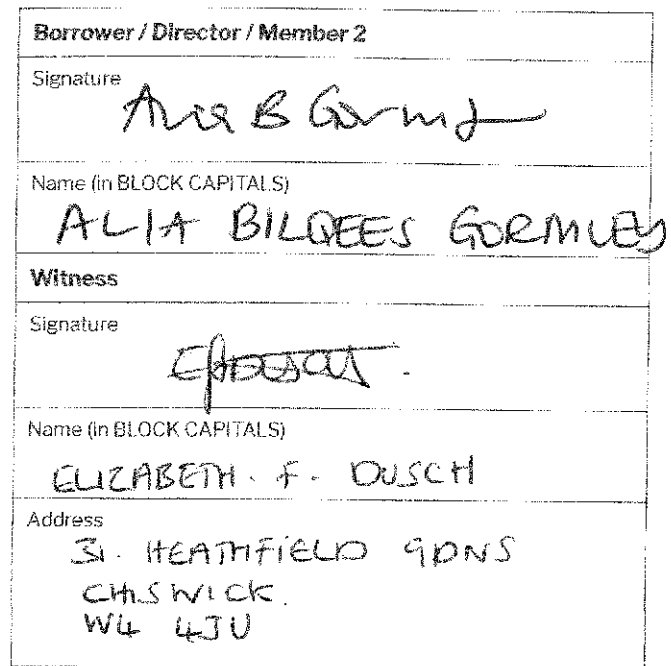 Borrower / Director / Member 2
Signature
Alia B Gormley
Name (in BLOCK CAPITALS)
ALIA BILQEES GORMLEY
Witness
Signature
Name (in BLOCK CAPITALS)
ELIZABETH. F. DUSCH
Address
31. HEATHFIELD GDNS
CHISWICK.
W4 4JU